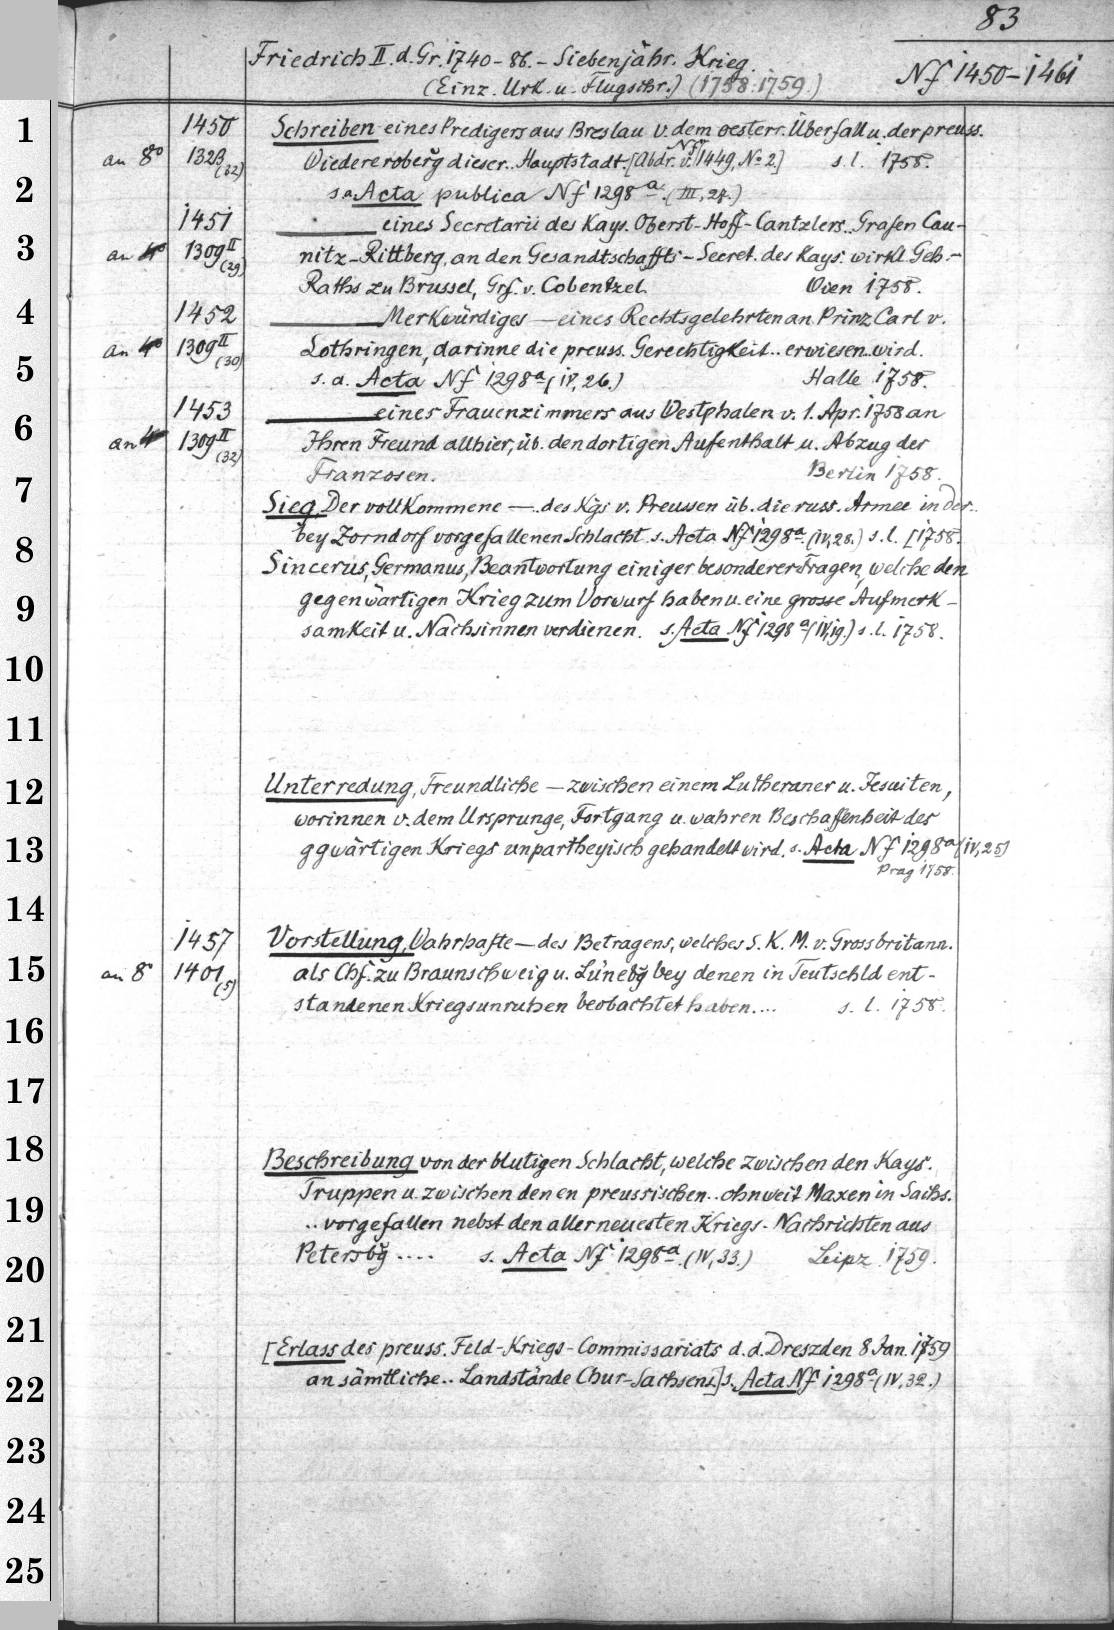 83
Friedrich II. d. Gr. 1740-86. - Siebenjähr. Krieg.
(Einz. Urk. u. Flugschr.) (1758. 1759.)
Nf 1450-1461
1
1450 Schreiben eines Predigers aus Breslau v. dem oesterr. Überfall u. der preuss.
an 8º 1323 (32) Wiedereroberg dieser.. Hauptstadt [Abdr. v. Nf 1449, No 2.] s. l. 1758.
2
s. a. Acta publica Nf 1298a (III, 24.)
1451 ______ eines Secretarii des Kays. Oberst-Hoff-Cantzlers.. Grafen Cau-
3
an 4º 1309 II (29) nitz-Rittberg, an den Gesandtschaffts-Secret. des Kays. wirkl. Geh.-
Raths zu Brussel, Grf. v. Cobentzel. Wien 1758.
4
1452 ______ Merkwürdiges — eines Rechtsgelehrten an Prinz Carl v.
5
an 4º 1309 II (30) Lothringen, darinne die preuss. Gerechtigkeit.. erwiesen wird.
s. a. Acta Nf 1298a (IV, 26.) Halle 1758.
6
1453 ______ eines Frauenzimmers aus Westphalen v. 1. Apr. 1758 an
an 4º 1309 II (32) Ihren Freund allhier, üb. den dortigen Aufenthalt u. Abzug der
Franzosen. Berlin 1758.
7
Sieg, Der vollkommene — des Kgs v. Preussen üb. die russ. Armee in der..
8
bey Zorndorf vorgefallenen Schlacht. s. Acta Nf 1298a (IV, 28.) s. l. [1758.
Sincerus, Germanus, Beantwortung einiger besonderer Fragen, welche den
9
gegenwärtigen Krieg zum Vorwurf haben u. eine grosse Aufmerk-
samkeit u. Nachsinnen verdienen. s. Acta Nf 1298a (IV, 19.) s. l. 1758.
10
11
12
Unterredung, Freundliche — zwischen einem Lutheraner u. Jesuiten,
worinnen v. dem Ursprunge, Fortgang u. wahren Beschaffenheit des
13
ggwärtigen Kriegs unpartheyisch gehandelt wird. s. Acta Nf 1298a (IV, 25)
Prag 1758.
14
1457 Vorstellung, Wahrhafte — des Betragens, welches S. K. M. v. Grossbritann.
15
an 8º 1401 (5) als Chf. zu Braunschweig u. Lünebg bey denen in Teutschld ent-
standenen Kriegsunruhen beobachtet haben.... s. l. 1758.
16
17
18
Beschreibung von der blutigen Schlacht, welche zwischen den Kays.
19
Truppen u. zwischen denen preussischen.. ohnweit Maxen in Sachs.
.. vorgefallen nebst den allerneuesten Kriegs-Nachrichten aus
20
Petersbg .... s. Acta Nf 1298a (IV, 33.) Leipz. 1759.
21
[Erlass des preuss. Feld-Kriegs-Commissariats d. d. Dreszden 8 Jan. 1759
22
an sämtliche.. Landstände Chur-Sachsens] s. Acta Nf 1298a (IV, 32.)
23
24
25